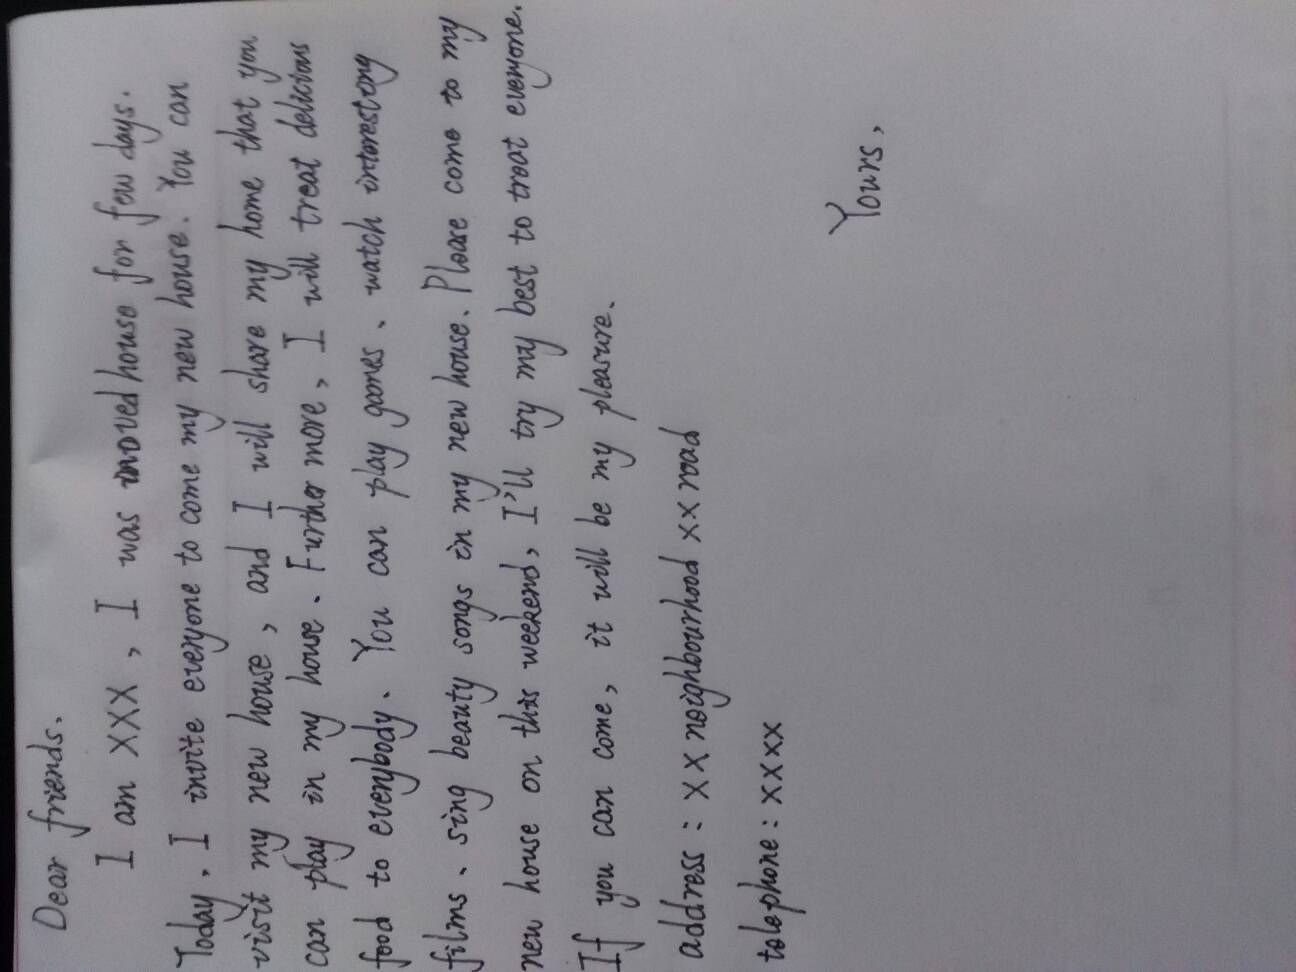 Dear friends.
I am XXX, I was moved house for few days.
Today, I invite everyone to come my new house. You can
visit my new house, and I will share my home that you
can play in my house. Further more, I will treat delicious
food to everybody. You can play games、watch interesting
films、sing beauty songs in my new house. Please come to my
new house on this weekend, I'll try my best to treat everyone.
If you can come, it will be my pleasure.
address: XX neighbourhood XX road
telephone: XXXX
Yours,